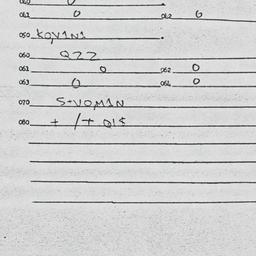 041 0 042 0
050 KOVINI .
060 QZZ
061 0 062 0
063 0 064 0
070 S+VOMIN
080 + /+ 01$